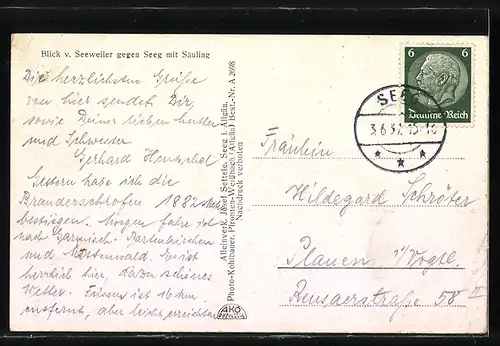 Blick v. Seeweiler gegen Seeg mit Säuling
Die herzlichsten Grüße
von hier sendet Dir,
sowie Deiner lieben Mutter
und Schwester
Gerhard
Gestern habe ich die
Branderschrofen 1882
bestiegen. Morgen fahre ich
nach Garmisch-Partenkirchen
und Mittenwald. Es ist
herrlich hier, dazu schönes
Wetter. Füssen ist 16 km
entfernt, aber leicht erreichbar
Alleinverk. Josef Settele, Seeg i. Allgäu.
Photo-Kohlbauer, Pfronten-Weißbach (Allgäu) Best.-Nr. A 2698
Nachdruck verboten
6 6
Deutsches Reich
SEEG
3.6.37.15-16
Fräulein
Hildegard Schröter
Plauen i/Vogtl.
Reusaerstraße 58 II